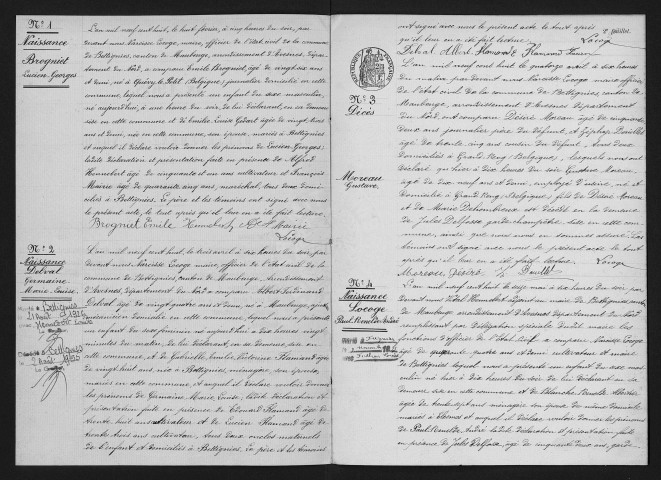 N° 1
Naissance
Brogniet
Lucien Georges
L'an mil neuf cent huit, le huit février, à cinq heures du soir, par
devant nous Narcisse Lecoge, maire, officier de l'état civil de la commune
de Bettignies, canton de Maubeuge, arrondissement d'Avesnes, département
du Nord, a comparu Emile Brogniet, âgé de vingt six ans
et demi, né à Quévy le Petit (Belgique), journalier domicilié en cette
commune, lequel nous a présenté un enfant du sexe masculin,
né aujourd'hui, à une heure du soir de lui déclarant, en sa demeure
sise en cette commune et de Emilie Godart âgée de vingt trois
ans et demi, née en cette commune, son épouse, mariés à Bettignies
et auquel il déclare vouloir donner les prénoms de Lucien Georges;
la dite déclaration et présentation faite en présence de Alfred
Hennebert âgé de cinquante et un ans cultivateur et François
Mairie âgé de quarante cinq ans, maréchal, tous deux domiciliés
à Bettignies, le père et les témoins ont signé avec nous
le présent acte, le tout après qu'il leur en a été fait lecture
Brogniet Emile Hennebert Mairie
N° 2
Naissance
Delval
Germaine
Marie Louise
L'an mil neuf cent huit, le trois avril à six heures du soir, par
devant nous Narcisse Lecoge maire officier de l'état civil de la
commune de Bettignies, canton de Maubeuge, arrondissement
d'Avesnes, département du Nord a comparu Albert Ferdinand
Delval âgé de vingt quatre ans et demi, né à Maubeuge,
domicilié en cette commune, lequel nous a présenté
un enfant du sexe féminin né aujourd'hui à dix heures vingt
minutes du matin de lui déclarant, en sa demeure sise en
cette commune, et de Gabrielle Victorine Flamand âgée
de vingt huit ans, née à Bettignies, ménagère son épouse,
mariés en cette commune, et auquel il déclare vouloir donner
les prénoms de Germaine Marie Louise, la dite déclaration et
présentation faite en présence de Edmond Flamand âgé de
trente huit ans cultivateur et de Lucien Flamand âgé de
trente trois ans cultivateur, tous deux oncles maternels
de l'enfant et domiciliés à Bettignies, le père et les témoins
ont signé avec nous le présent acte le tout après
qu'il leur en a été fait lecture.
Delval Albert Flamand E Flamand Lucien
N° 3
Décès
Moreau
Gustave
L'an mil neuf cent huit le quatorze avril à six heures
du matin par devant nous Narcisse Lecoge maire officier
de l'état civil de la commune de Bettignies canton de
Maubeuge, arrondissement d'Avesnes département du
Nord, ont comparu Désiré Moreau âgé de cinquante
deux ans journalier père du défunt, et
âgé de trente cinq ans cousin du défunt, tous deux
domiciliés à Grand Reng (Belgique), lesquels nous ont
déclaré qu'hier à dix heures du soir Gustave Moreau
âgé de dix neuf ans et demi, employé d'usine, né et
domicilié à Grand Reng (Belgique), fils de Désiré Moreau
et de Marie Dehombreux est décédé en la demeure
de Jules Delfosse garde champêtre, sise en cette commune,
ainsi que nous nous en sommes assuré. Les
témoins ont signé avec nous le présent acte après
qu'il leur en a été fait lecture.
Moreau Désiré
N° 4
Naissance
Lecocge
Paul Renelde André
L'an mil neuf cent huit le sept mai à six heures du soir par
devant nous Vital Hennebert adjoint au maire de Bettignies canton
de Maubeuge arrondissement d'Avesnes département du Nord
remplissant par délégation spéciale dudit maire les
fonctions d'officier de l'état civil a comparu Narcisse Lecoge
âgé de quarante quatre ans et demi cultivateur et maire
de Bettignies lequel nous a présenté un enfant du sexe masculin
né hier à dix heures du soir de lui déclarant en sa
demeure sise en cette commune et de Blanche
âgée de trente sept ans ménagère son épouse
mariés à et auquel il déclare vouloir donner les prénoms
de Paul Renelde André la dite déclaration et présentation faite
en présence de Jules Delfosse âgé de cinquante deux ans, garde